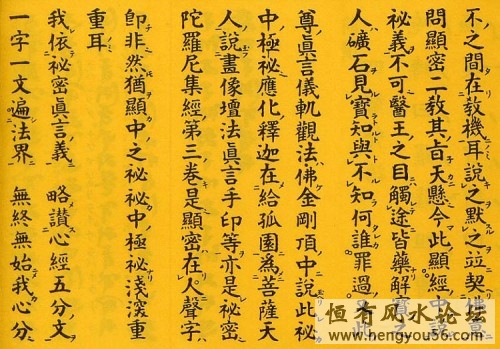 不之間在教機耳說之默之竝契佛意
問顯密二教其旨天懸今此顯經中說
祕義不可醫王之目觸途皆藥解寶之
人礦石見寶知與不知何誰罪過又此
尊眞言儀軌觀法佛金剛頂中說此祕
中極祕應化釋迦在給孤園為菩薩天
人說畫像壇法眞言手印等亦是祕密
陀羅尼集經第三卷是顯密在人聲字
即非然猶顯中之祕祕中極祕淺深重
重耳
我依祕密眞言義 略讚心經五分文
一字一文遍法界 無終無始我心分
恒有风水论坛
hengyoufs.com